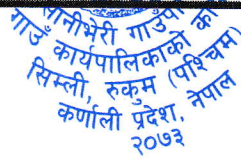 सानीभेरी गाउँपा
गा.वि. कार्यपालिकाको का
सिम्ली, रुकुम (पश्चिम)
कर्णाली प्रदेश, नेपाल
२०७३